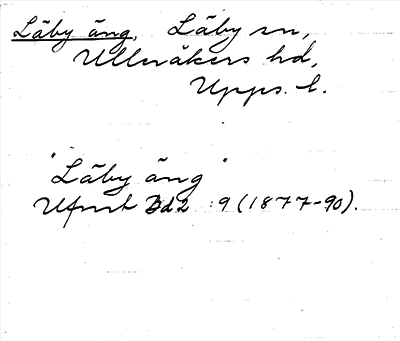 Läby äng, Läby sn,
Ulleråkers hd,
Upps. l.
"Läby äng"
Ufmt Bd 2 : 9 (1877-90).